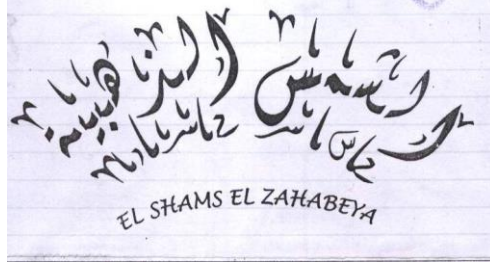 الشمس الذهبية
EL SHAMS EL ZAHABEYA